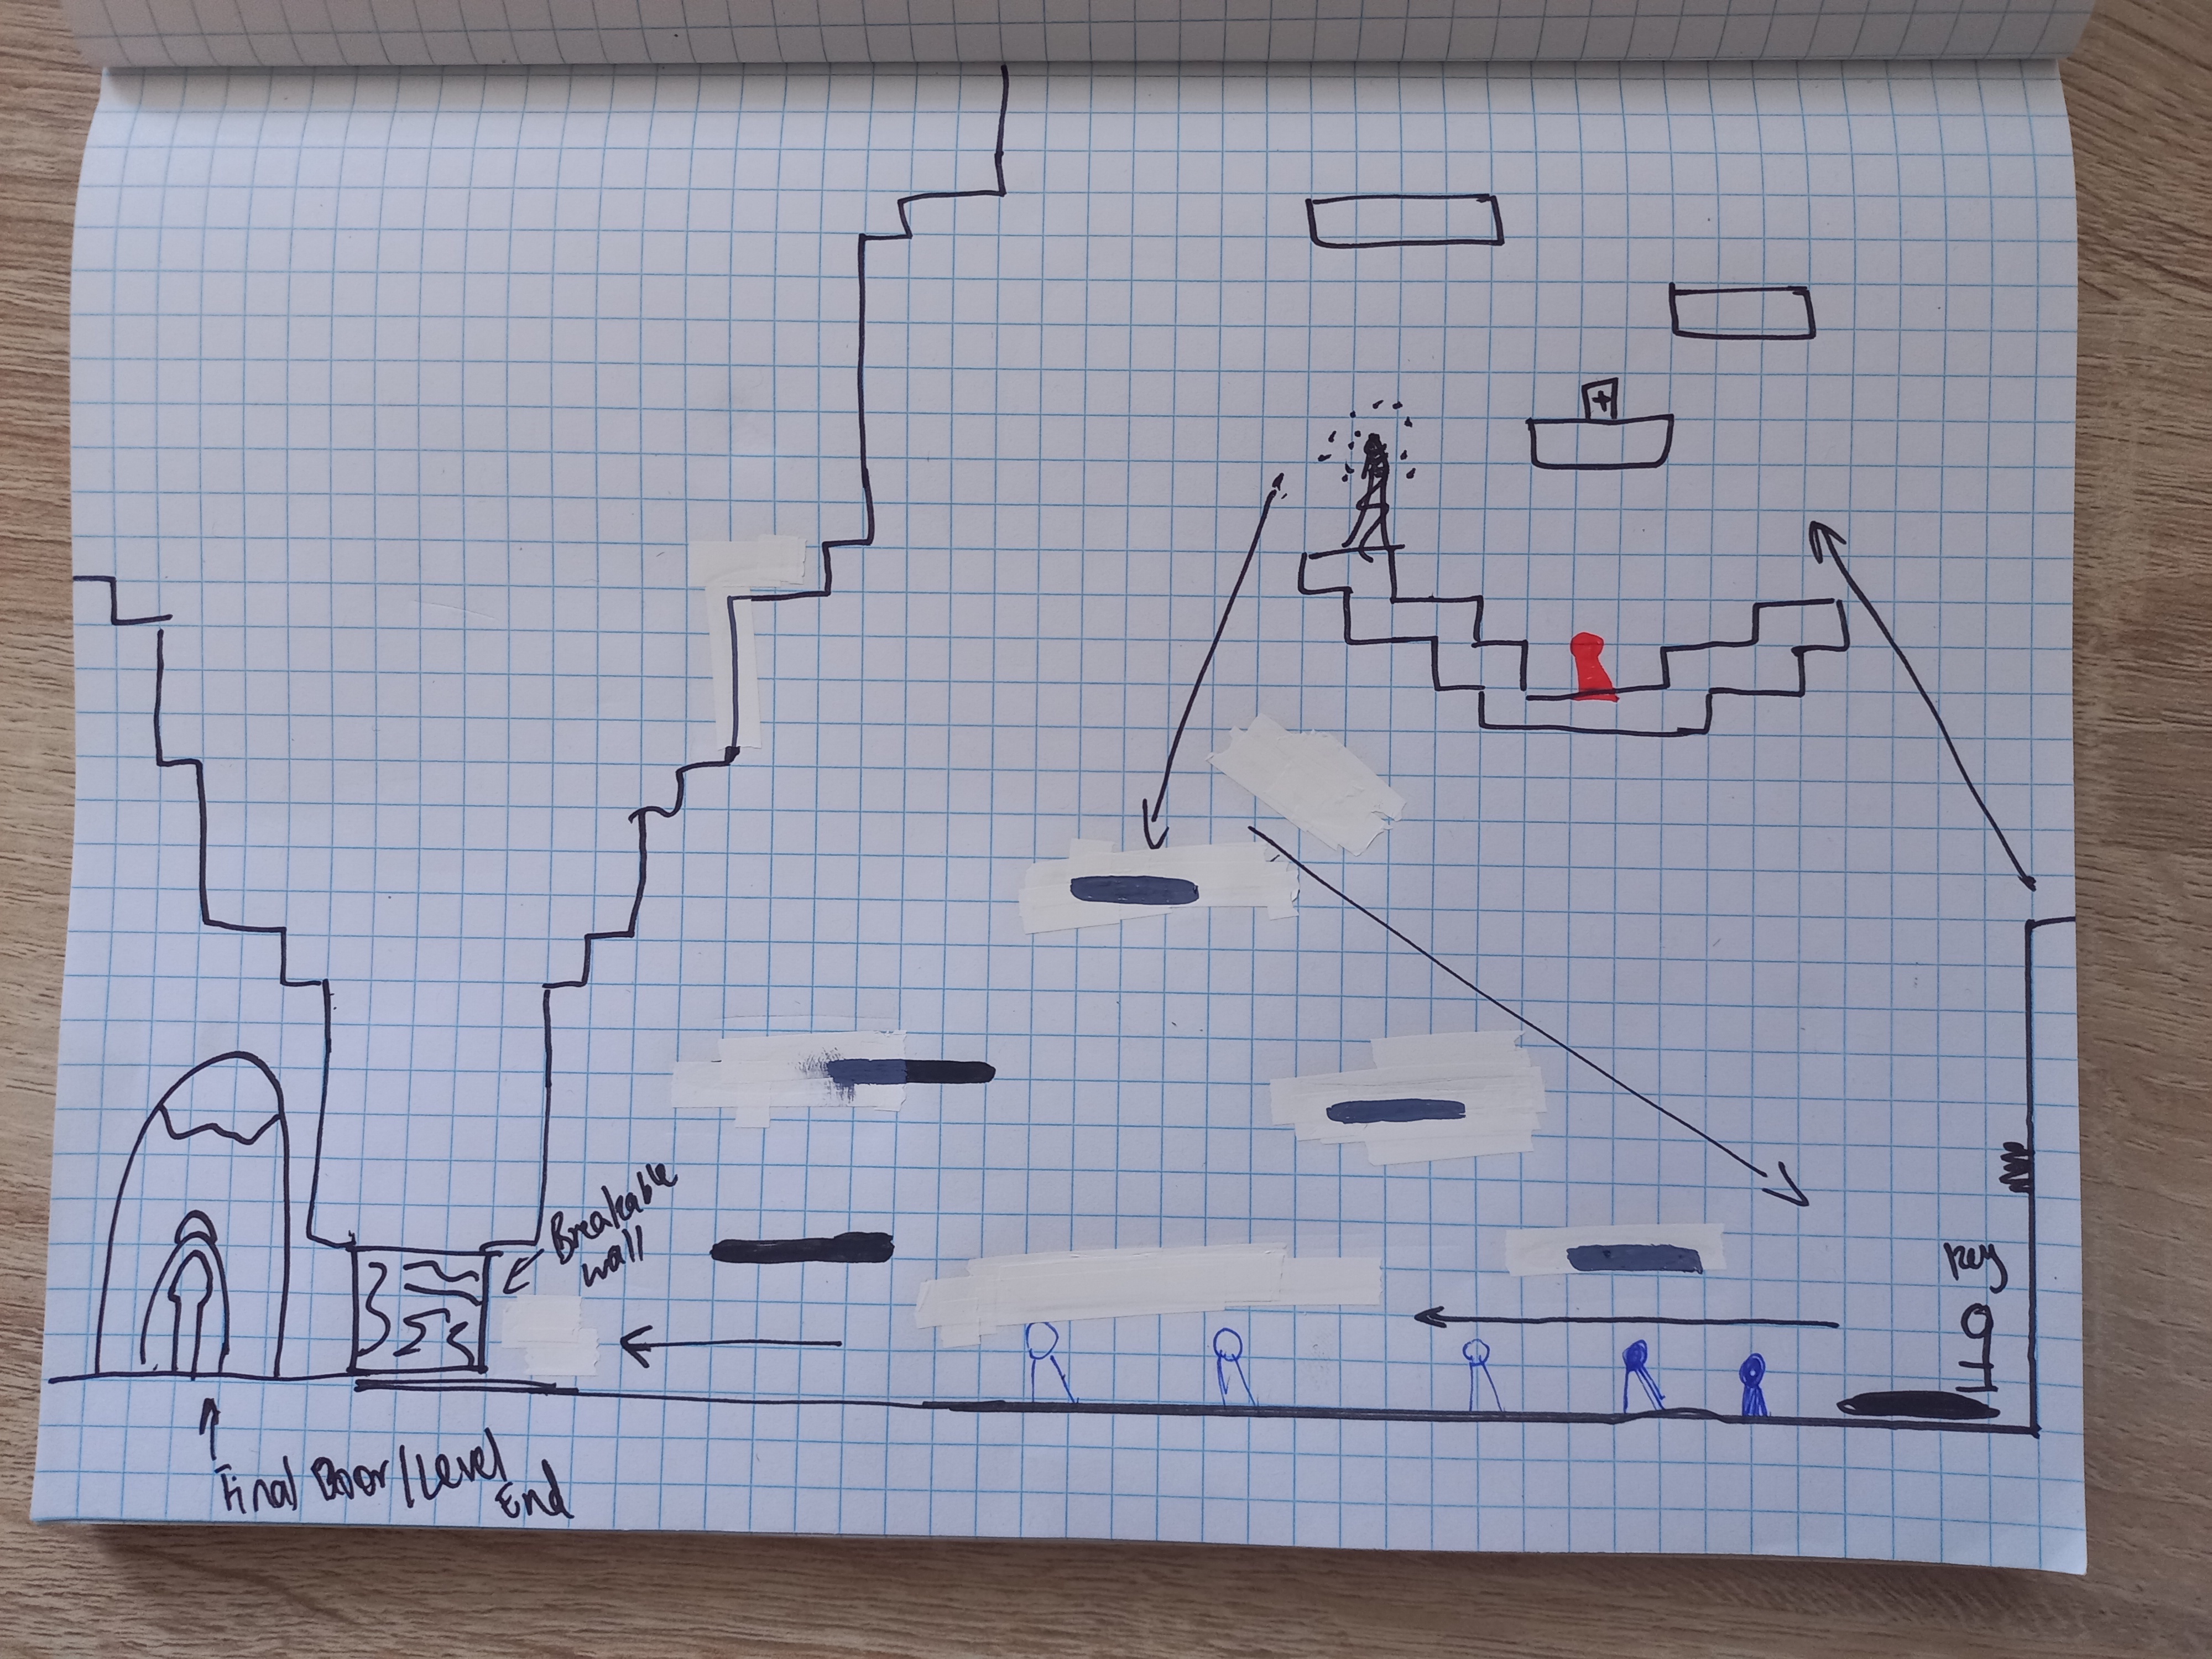 +
Breakable
wall
key
Final Door/Level
End